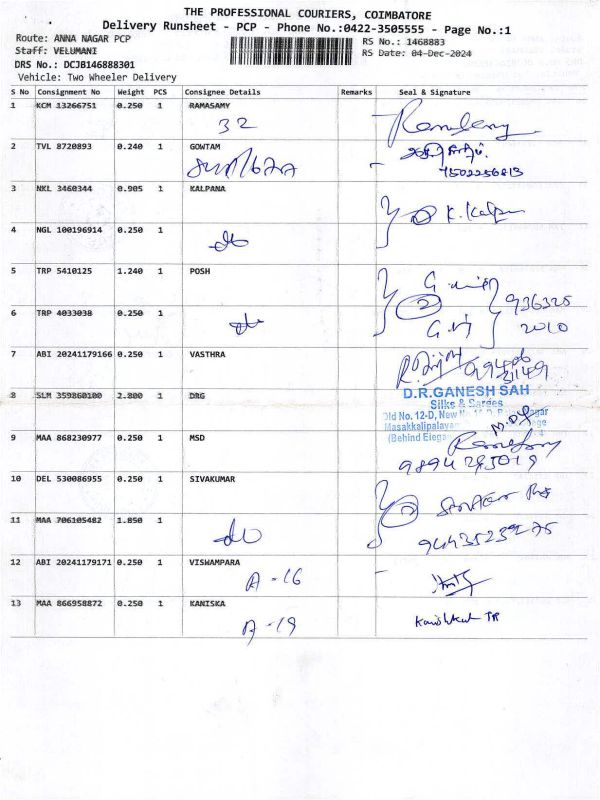 THE PROFESSIONAL COURIERS, COIMBATORE
Delivery Runsheet - PCP - Phone No.:0422-3505555 - Page No.:1
Route: ANNA NAGAR PCP
RS No.: 1468883
Staff: VELUMANI
RS Date: 04-Dec-2024
DRS No.: DCJB146888301
Vehicle: Two Wheeler Delivery
S No Consignment No Weight PCS Consignee Details Remarks Seal & Signature
1 KCM 13266751 0.250 1 RAMASAMY
32
2 TVL 8720893 0.240 1 GOWTAM
7502256813
3 NKL 3460344 0.905 1 KALPANA
K. Kalpa
4 NGL 100196914 0.250 1
do
5 TRP 5410125 1.240 1 POSH
2
936325
2010
6 TRP 4033038 0.250 1
do
7 ABI 20241179166 0.250 1 VASTHRA
8 SLM 359860100 2.800 1 DRG
D.R.GANESH SAH
Silks & Sarees
Old No. 12-D, New
Masakkalipalayam
(Behind
9 MAA 868230977 0.250 1 MSD
9894293019
10 DEL 530086955 0.250 1 SIVAKUMAR
2
11 MAA 706105482 1.850 1
do
9443523275
12 ABI 20241179171 0.250 1 VISWAMPARA
A-16
13 MAA 866958872 0.250 1 KANISKA
A-19